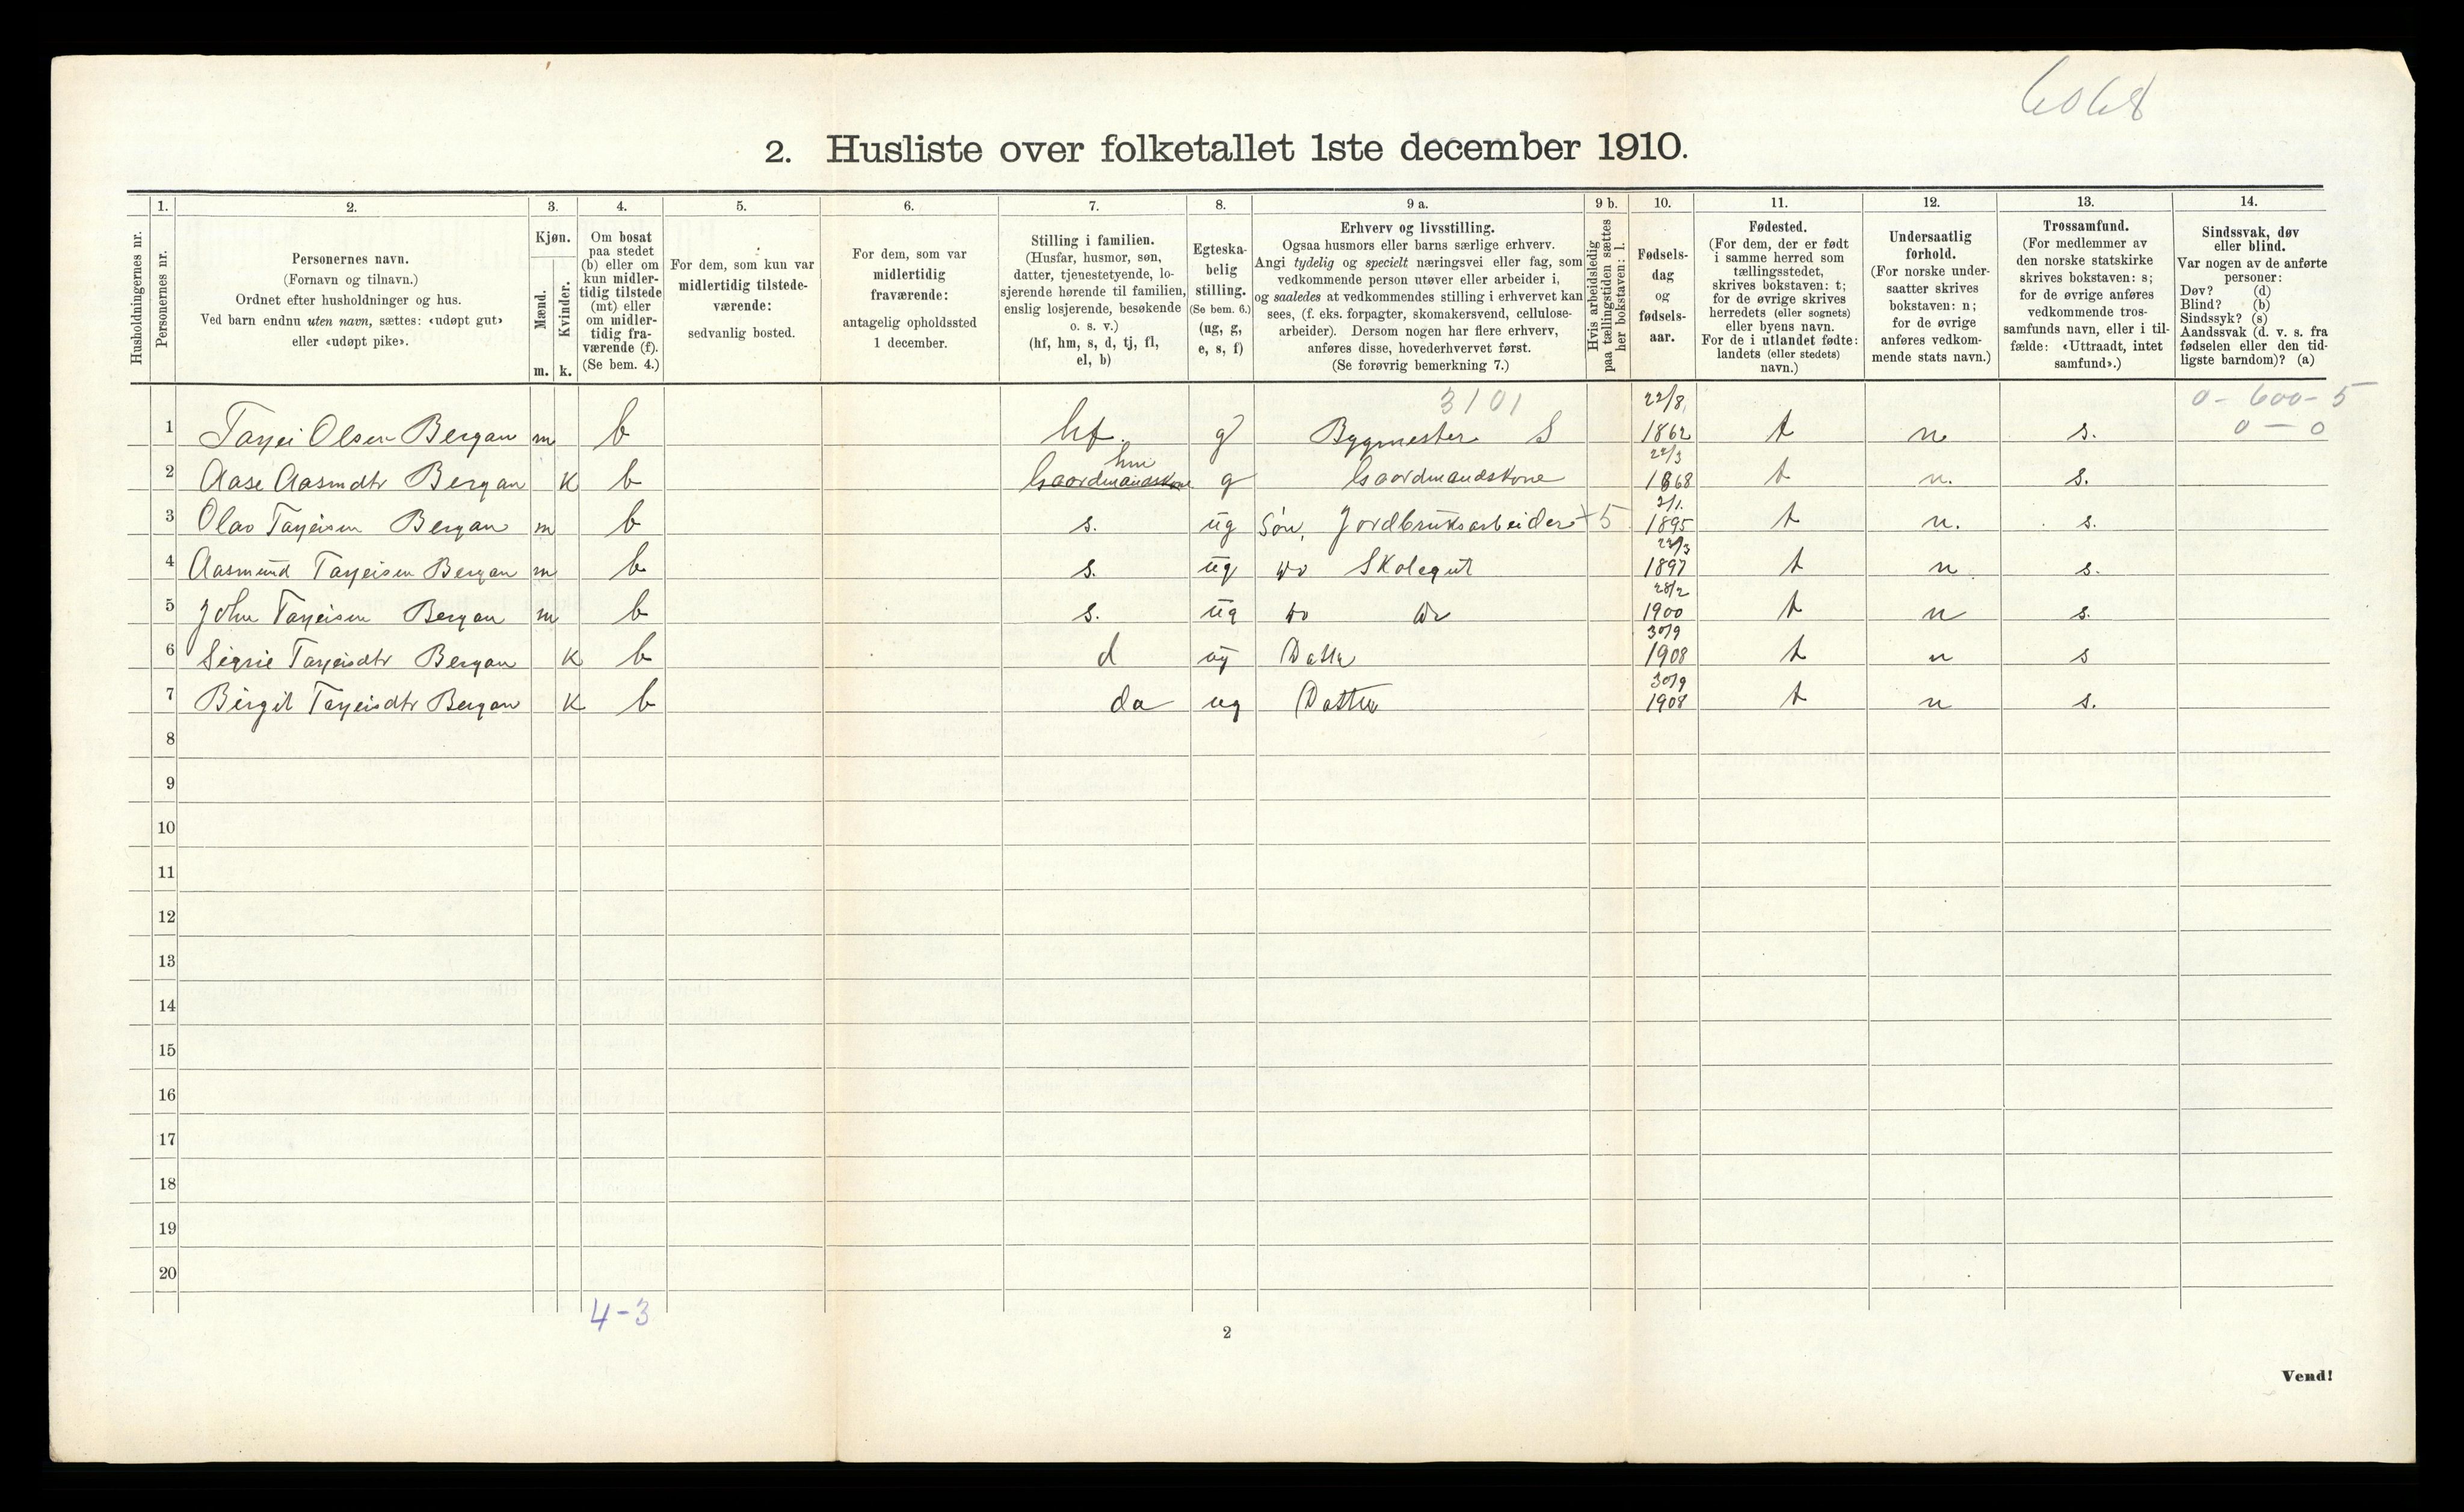 6068
2. Husliste over folketallet 1ste december 1910.
1. 2. 3. 4. 5. 6. 7. 8. 9 a. 9 b. 10. 11. 12. 13. 14.
Husholdningernes nr.
Personernes nr.
Personernes navn.
(Fornavn og tilnavn.)
Ordnet efter husholdninger og hus.
Ved barn endnu uten navn, sættes: «udøpt gut»
eller «udøpt pike».
Kjøn.
Mænd.
Kvinder.
m. k.
Om bosat
paa stedet
(b) eller om
kun midler-
tidig tilstede
(mt) eller
om midler-
tidig fra-
værende (f).
(Se bem. 4.)
For dem, som kun var
midlertidig tilstede-
værende:
sedvanlig bosted.
For dem, som var
midlertidig
fraværende:
antagelig opholdssted
1 december.
Stilling i familien.
(Husfar, husmor, søn,
datter, tjenestetyende, lo-
sjerende hørende til familien,
enslig losjerende, besøkende
o. s. v.)
(hf, hm, s, d, tj, fl,
el, b)
Egteska-
belig
stilling.
(Se bem. 6.)
(ug, g,
e, s, f)
Erhverv og livsstilling.
Ogsaa husmors eller barns særlige erhverv.
Angi tydelig og specielt næringsvei eller fag, som
vedkommende person utøver eller arbeider i,
og saaledes at vedkommendes stilling i erhvervet kan
sees, (f. eks. forpagter, skomakersvend, cellulose-
arbeider). Dersom nogen har flere erhverv,
anføres disse, hovederhvervet først.
(Se forøvrig bemerkning 7.)
Hvis arbeidsledig
paa tællingstiden sættes
her bokstaven: l.
Fødsels-
dag
og
fødsels-
aar.
Fødested.
(For dem, der er født
i samme herred som
tællingsstedet,
skrives bokstaven: t;
for de øvrige skrives
herredets (eller sognets)
eller byens navn.
For de i utlandet fødte:
landets (eller stedets)
navn.)
Undersaatlig
forhold.
(For norske under-
saatter skrives
bokstaven: n;
for de øvrige
anføres vedkom-
mende stats navn.)
Trossamfund.
(For medlemmer av
den norske statskirke
skrives bokstaven: s;
for de øvrige anføres
vedkommende tros-
samfunds navn, eller i til-
fælde: «Uttraadt, intet
samfund».)
Sindssvak, døv
eller blind.
Var nogen av de anførte
personer:
Døv? (d)
Blind? (b)
Sindssyk? (s)
Aandssvak (d. v. s. fra
fødselen eller den tid-
ligste barndom)? (a)
3101 22/8 0-600-5
1 Tarjei Olsen Bergan m b hf. g Bygmester S 1862 t n s. 0-0
hm 22/3
2 Aase Aasmdtr Bergan k b Gaardmandskone g Gaardmandskone 1868 t n. s.
2/1.
3 Olav Tarjeisen Bergan m b s. ug Søn, Jordbruksarbeider +5 1895 t n. s.
22/3
4 Aasmund Tarjeisen Bergan m b s. ug do Skolegut 1897 t n s.
28/2
5 John Tarjeisen Bergan m b s. ug do do 1900 t n s.
30/9
6 Tarjeisdtr Bergan k b d ug Datter 1908 t n s
30/9
7 Birgit Tarjeisdtr Bergan k b da ug Datter 1908 t n s.
8
9
10
11
12
13
14
15
16
17
18
19
20
4-3
2
Vend!